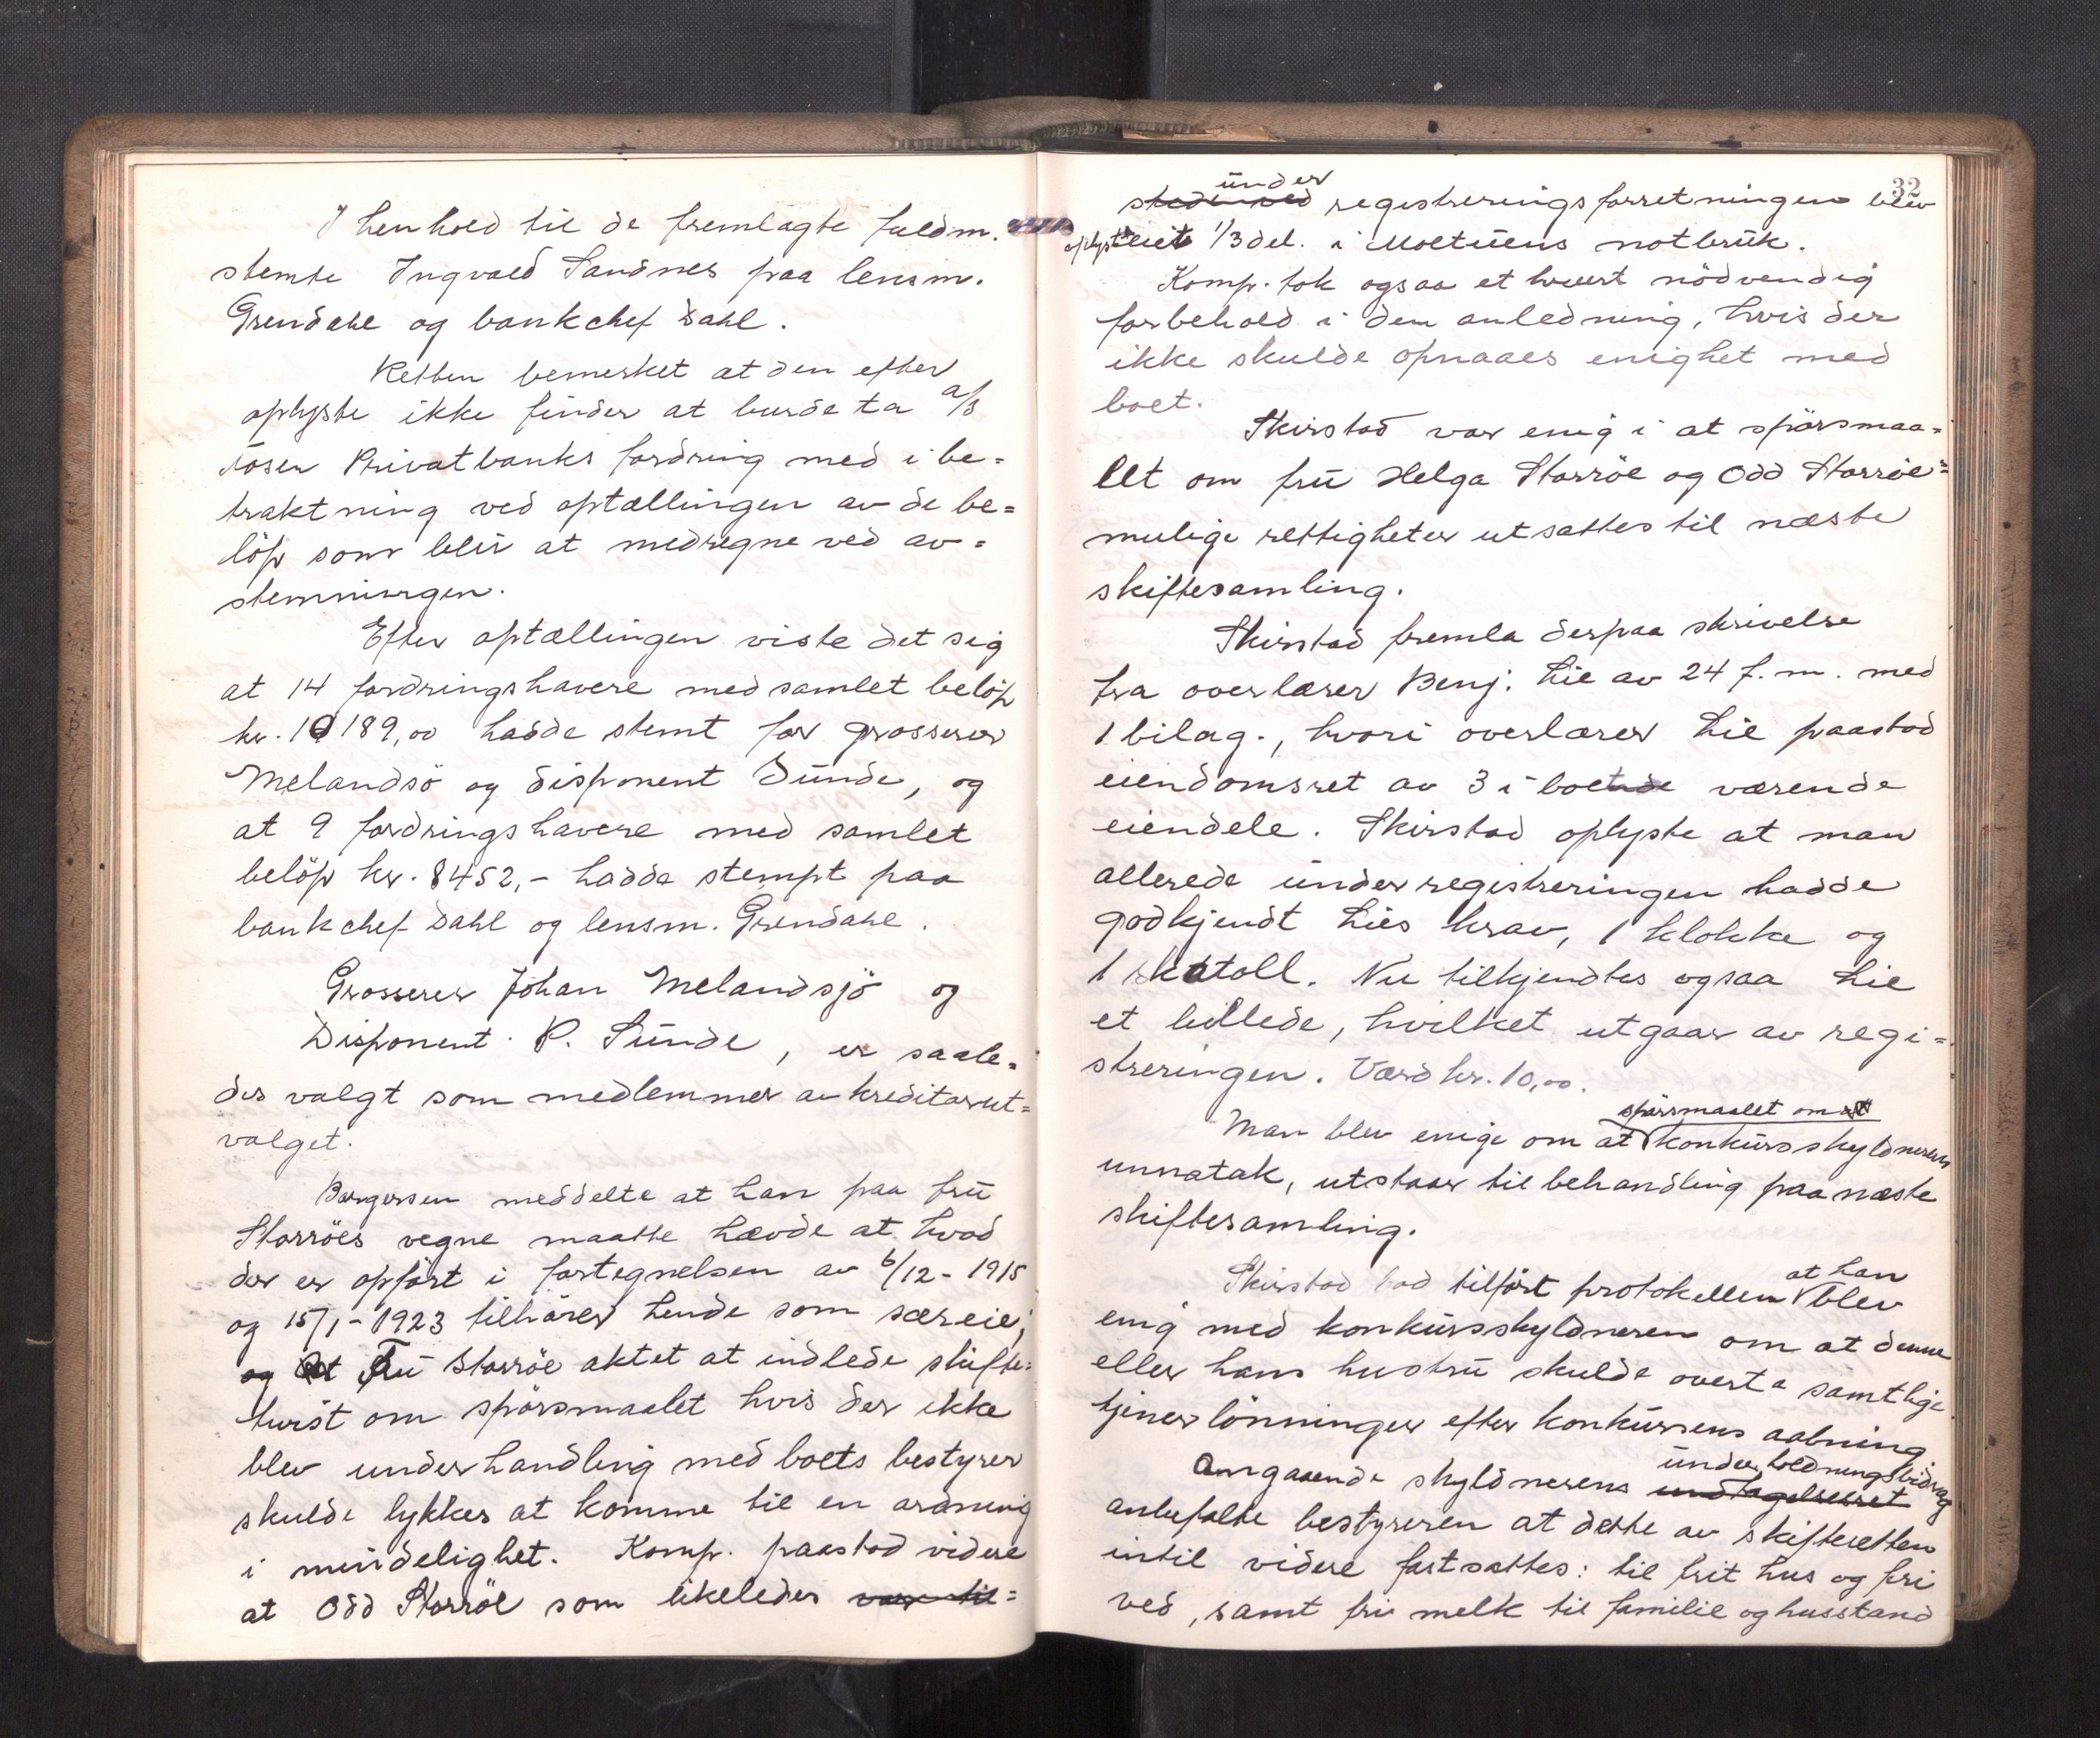 I henhold til de fremlagte fuldm.
stemte Ingvald Sandnes paa lensm.
Grendahl og bankchef Dahl.
Retten bemerket at den efter
oplyste ikke finder at burde ta a/s
Fosen Privatbanks fordring med i be=
traktning ved optællingen av de be=
löp som blir at medregne ved av=
stemningen.
Efter optællingen viste det sig
at 14 fordringshavere med samlet belöp
kr. 10189,00 hadde stemt for grosserer
Melandsö og disponent Sunde, og
at 9 fordringshavere med samlet
belöp kr. 8452,- hadde stempt paa
bankchef Dahl og lensm. Grendahl.
Grosserer Johan Melandsjö og
Disponent P. Sunde, er saale=
des valgt som medlemmer av kreditorut=
valget.
Borgersen meddelte at han paa fru
Storröes vegne maatte hævde at hvad
der er opfört i fortegnelsen av 6/12-1915
og 15/1-1923 tilhörer hende som særeie,
og at Fru Storröe aktet at indlede skifte=
tvist om spörsmaalet hvis der ikke
blev underhandling med boets bestyrer
skulde lykkes at komme til en ordning
i mindelighet. Komp. paastod videre
at Odd Storröe som likeledes var til=
32
under
sted ved registreringsforretningen blev
oplyst eiet 1/3 del. i Moltuens notbruk.
Komp. tok ogsaa et hvert nödvendig
forbehold i den anledning, hvis der
ikke skulde opnaaes enighet med
boet.
Skirstad var enig i at spörsmaa=
let om fru Helga Storröe og Odd Storröes
mulige rettigheter utsattes til næste
skiftesamling.
Skirstad fremla derpaa skrivelse
fra overlærer Benj. Lie av 24 f.m. med
1 bilag., hvori overlærer Lie paastod
eiendomsret av 3 i boet værende
eiendele. Skirstad oplyste at man
allerede under registreringen hadde
godkjendt Lies krav, 1 klokke og
1 skatoll. Nu tilkjendtes ogsaa Lie
et billede, hvilket utgaar av regi=
streringen. Værd kr. 10,00.
spörsmaalet om
Man blev enige om at konkursskyldnerens
unnatak, utstaar til behandling paa næste
skiftesamling.
at han
Skirstad bad tilfört protokollen blev
enig med konkursskyldneren om at denne
eller hans hustru skulde overta samtlige
tjenerlönninger efter konkursens aabning
underholdningsbidrag
Angaaende skyldnerens undtagelsesret
anbefalte bestyreren at dette av skifteretten
intil videre fastsattes: til frit hus og fri
ved, samt fri melk til familie og husstand